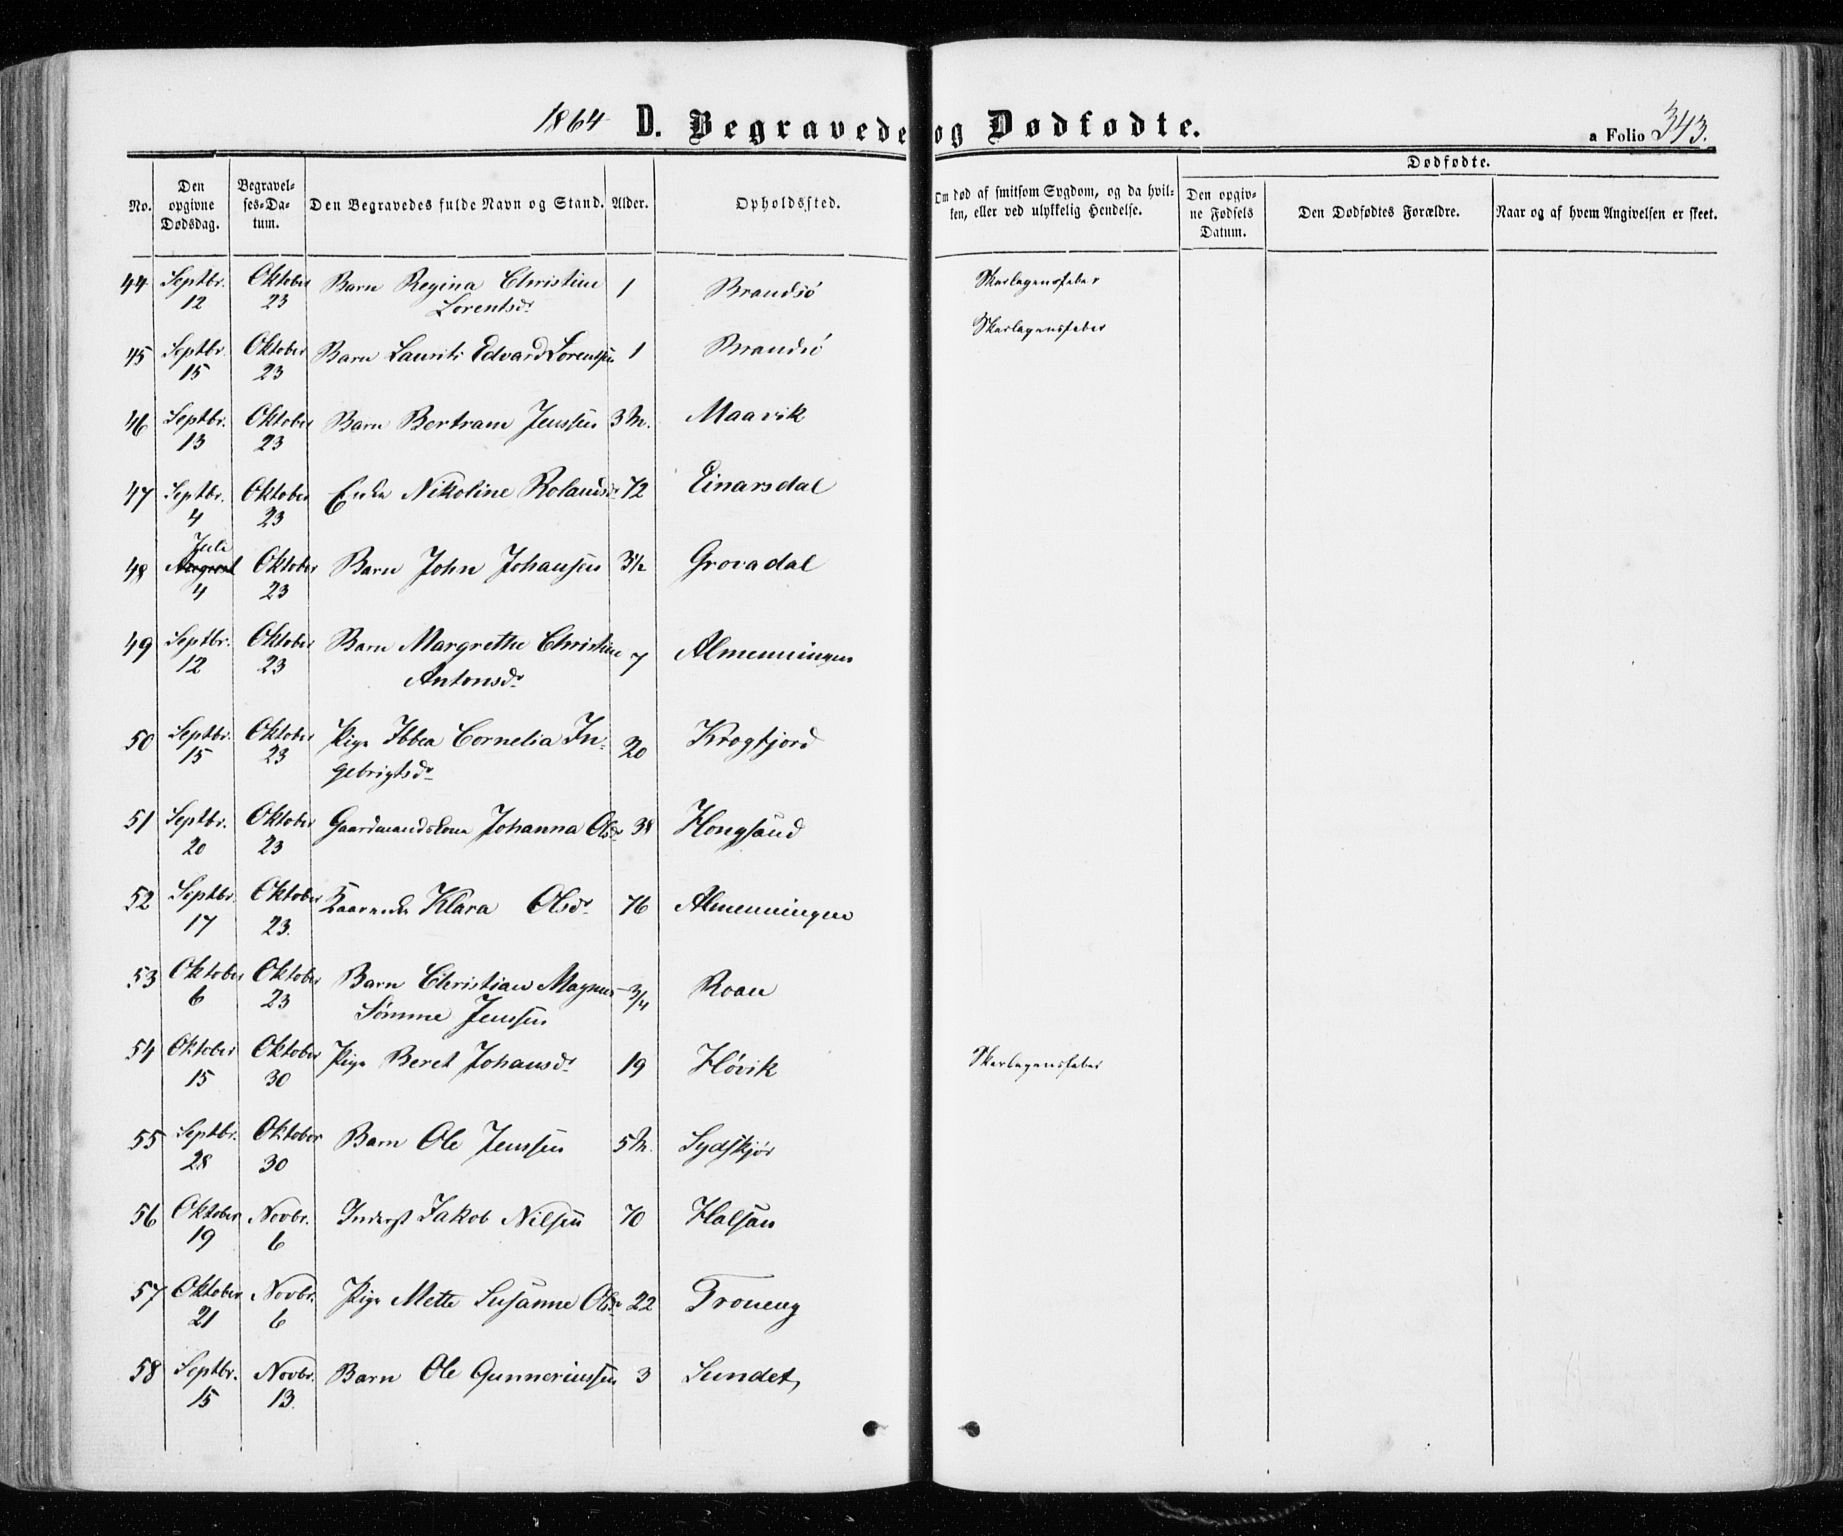 1864 D. Begravede og Dødfødte. a Folio 343.
Dødfødte.
No. Den opgivne Dødsdag. Begravelses-Datum. Den Begravedes fulde Navn og Stand. Alder. Opholdssted. Om død af smitsom Sygdom, og da hvilken, eller ved ulykkelig Hendelse. Den opgivne Fødsels Datum. Den Dødfødtes Forældre. Naar og af hvem Angivelsen er skeet.
44 Septbr. 12 Oktober 23 Barn Regina Christine Lorentsdr 1 Brandsø Skarlagensfeber
45 Septbr. 15 Oktober 23 Barn Laurits Edvard Lorentsen 1 Brandsø Skarlagensfeber
46 Septbr. 13 Oktober 23 Barn Bertram Jenssen 3 M. Maavik
47 Septbr. 4 Oktober 23 Enke Nikoline Rolandsdr 72 Einarsdal
48 Juli August 4 Oktober 23 Barn John Johansen 3½ Grovadal
49 Septbr. 12 Oktober 23 Barn Margrethe Christine Antonsdr 7 Almenningen
50 Septbr. 15 Oktober 23 Pige Ibbea Cornelia Ingebrigtsdr 20 Krogfjord
51 Septbr. 20 Oktober 23 Gaardmandskone Johanna Olsdr 38 Hongsand
52 Septbr. 17 Oktober 23. Klara Olsdr 76 Almenningen
53 Oktober 6 Oktober 23 Barn Christian Magnus Sømme Jenssen 3/4 Roan
54 Oktober 15 Oktober 30 Pige Beret Johansdr 19 Høvik Skarlagensfeber
55 Septbr. 28 Oktober 30 Barn Ole Jenssen 5 M. Sydskjør
56 Oktober 19 Novbr. 6 Inderst Jakob Nilsen 70 Halsan
57 Oktober 21 Novbr. 6 Pige Mette Susanne Olsdr 22 Troneng
58 Septbr. 15 Novbr. 13. Barn Ole Gunneriussen 3 Sundet,